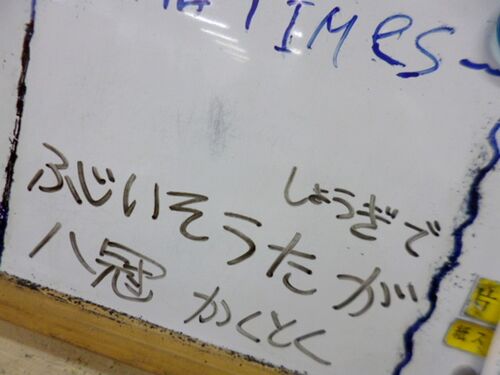 TIMES
ふじいそうたが
しょうぎで
八冠 かくとく